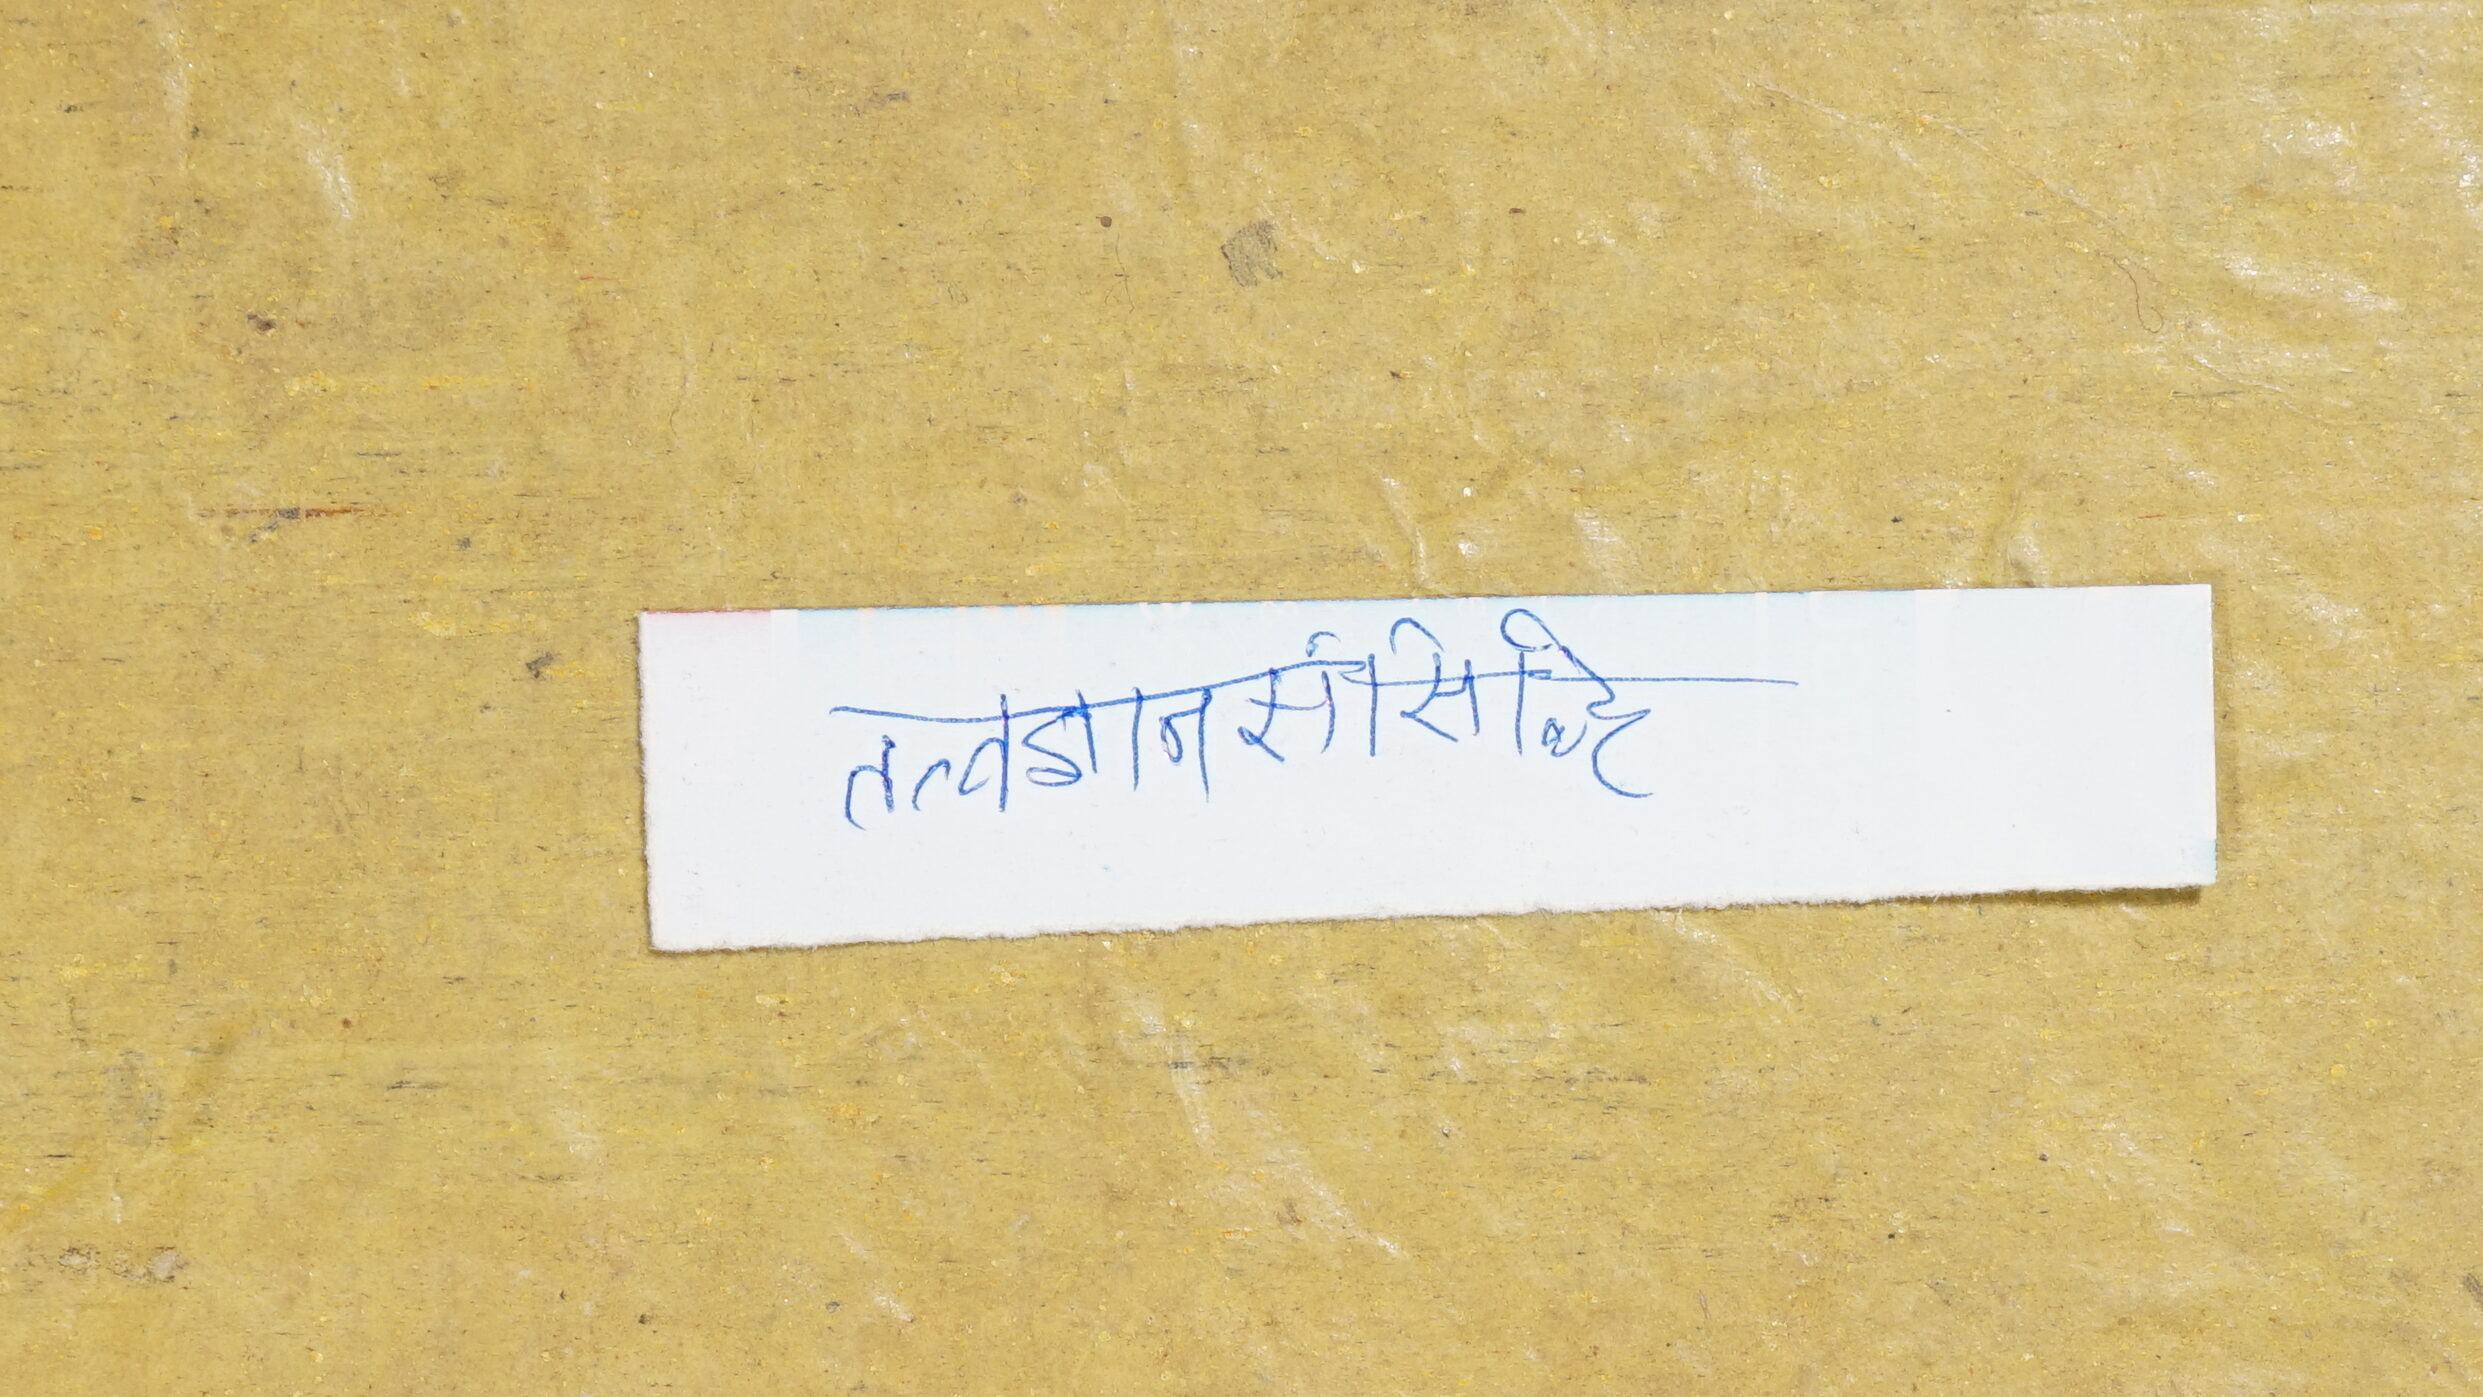 तत्वज्ञानसंसिद्धि